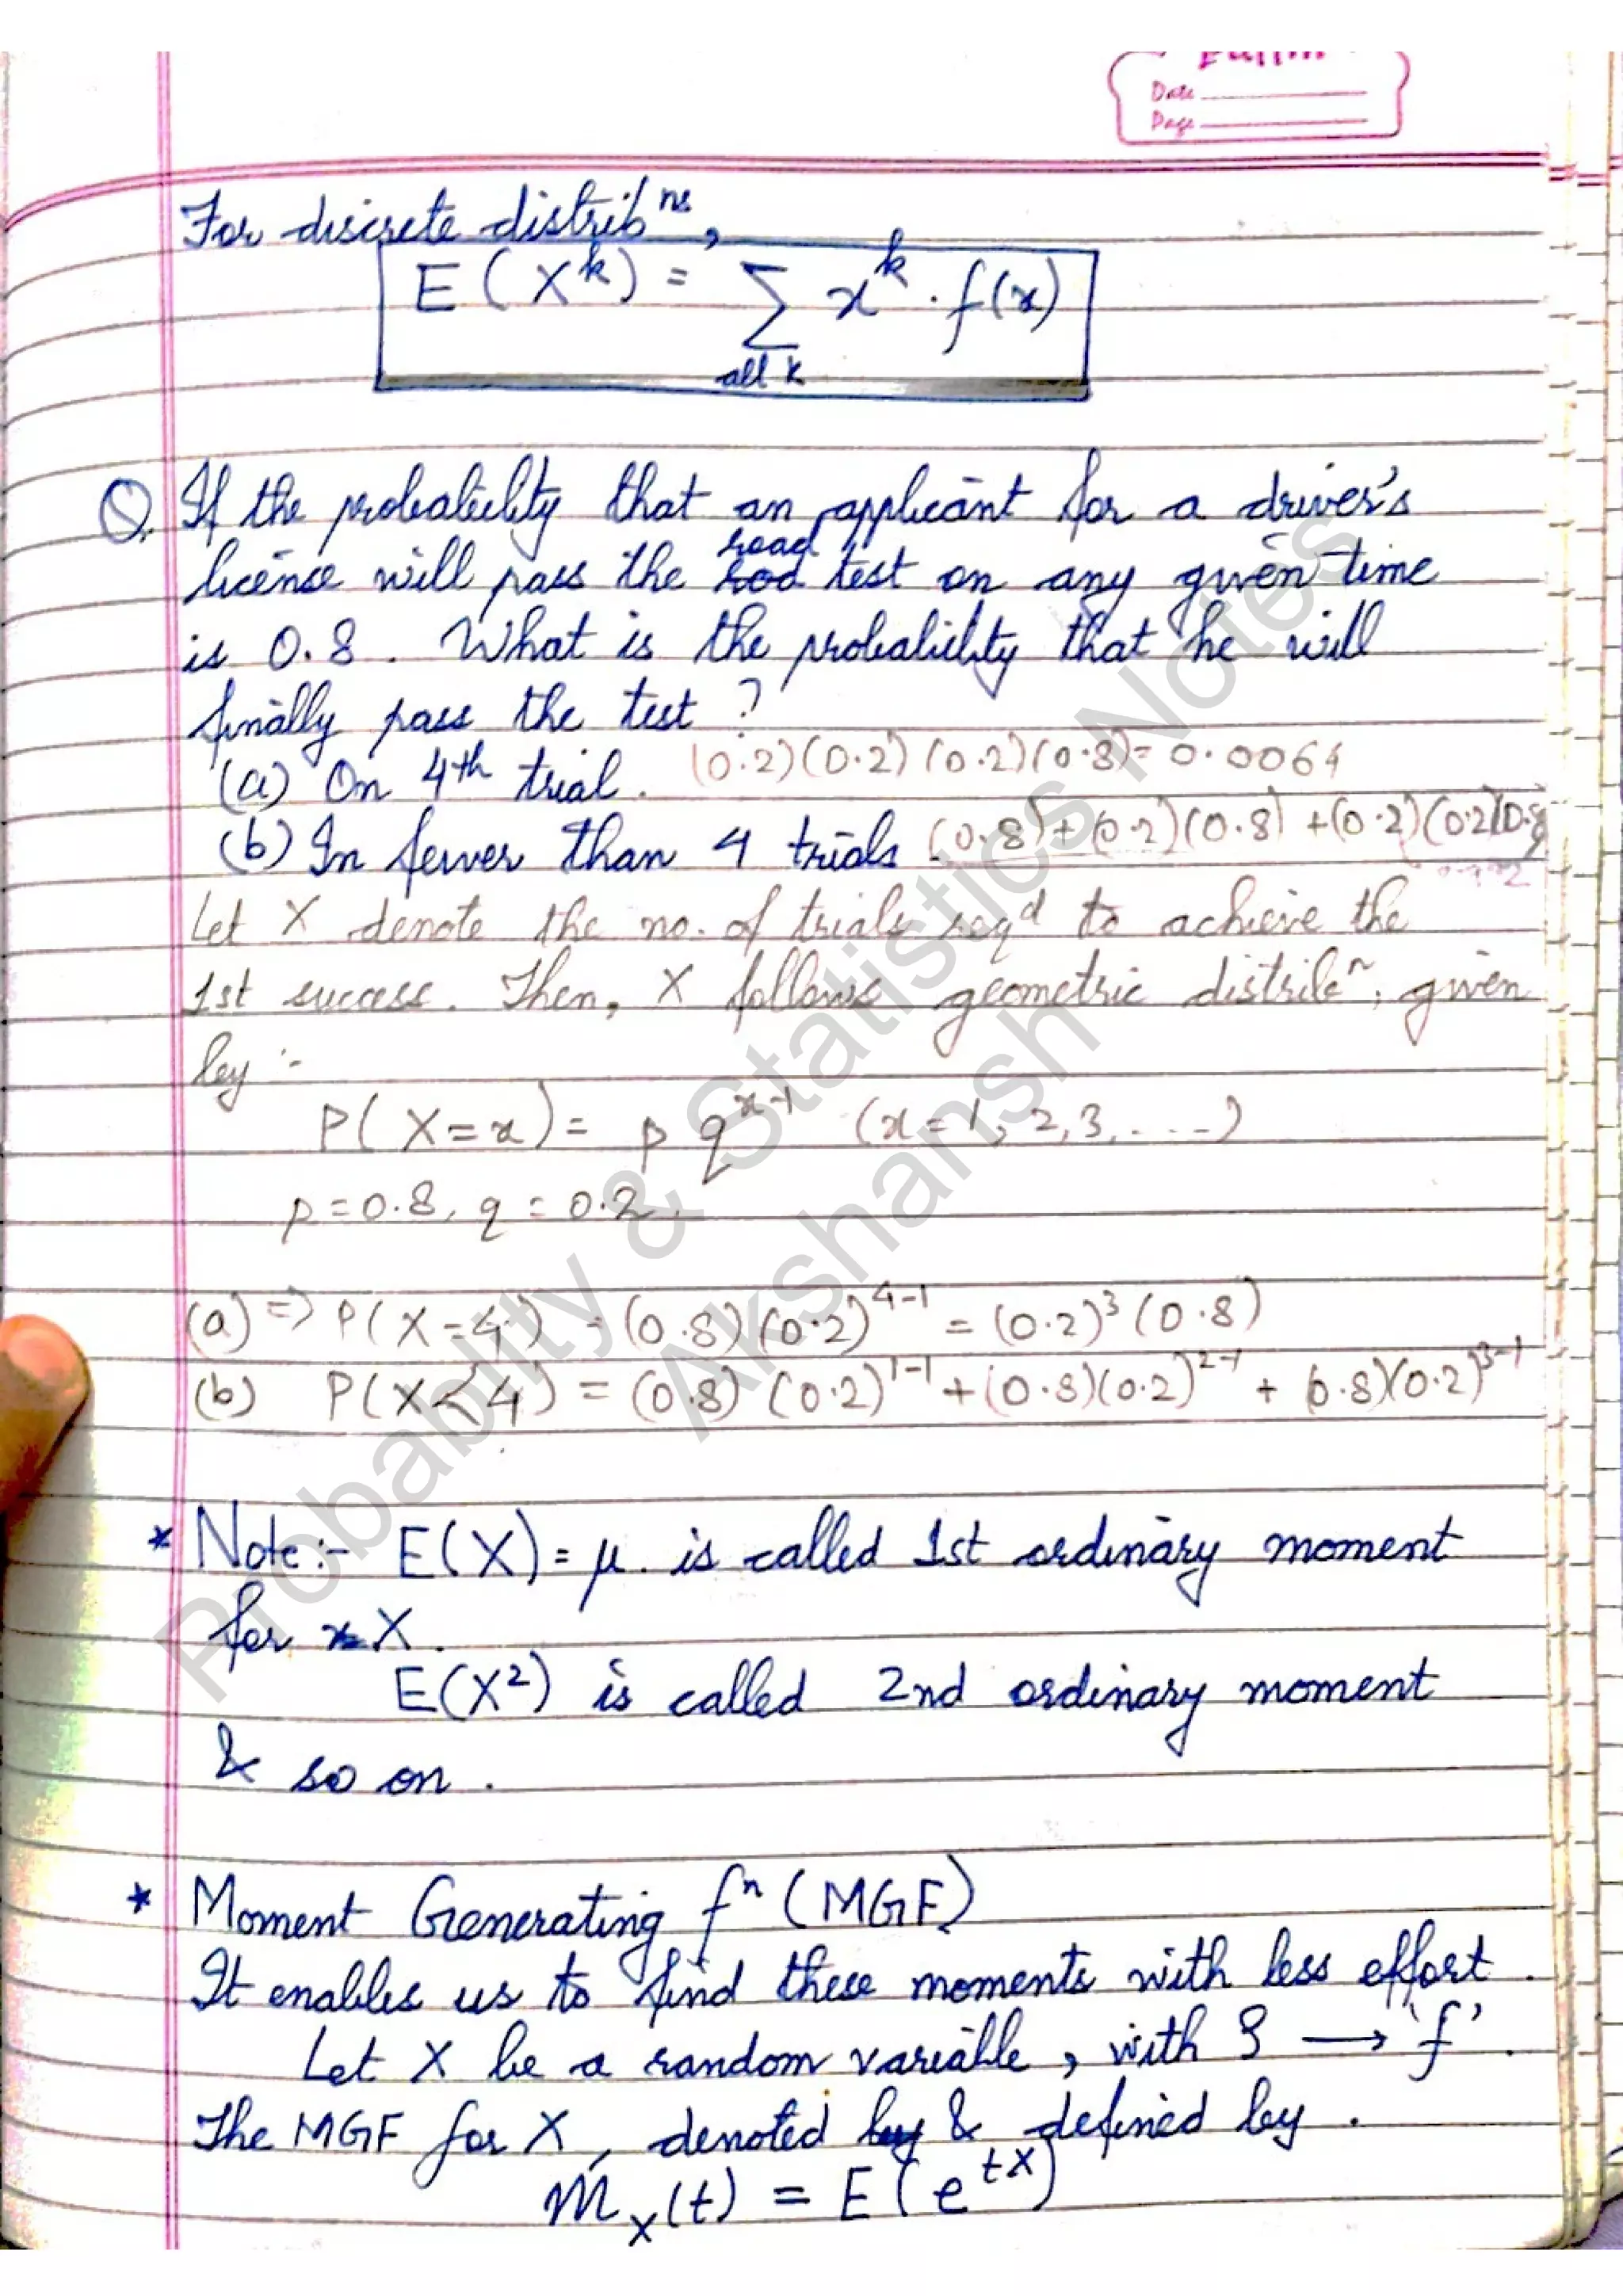 Date
Page
For discrete distribⁿˢ,
E(Xᵏ) = Σ xᵏ . f(x)
all x
Q. If the probability that an applicant for a driver's
license will pass the road test on any given time
is 0.8 . What is the probability that he will
finally pass the test ?
(a) On 4th trial. (0.2)(0.2)(0.2)(0.8) = 0.0064
(b) In fewer than 4 trials (0.8)+(0.2)(0.8)+(0.2)(0.2)(0.8)
Let X denote the no. of trials reqᵈ to achieve the
1st success. Then, X follows geometric distribⁿ, given
by :-
P(X=x) = p qˣ⁻¹ (x = 1, 2, 3, ....)
p = 0.8, q = 0.2.
(a) => P(X=4) = (0.8)(0.2)⁴⁻¹ = (0.2)³(0.8)
(b) P(X<4) = (0.8)(0.2)¹⁻¹ + (0.8)(0.2)²⁻¹ + (0.8)(0.2)³⁻¹
* Note:- E(X) = μ . is called 1st ordinary moment
for X.
E(X²) is called 2nd ordinary moment
& so on .
* Moment Generating fⁿ (MGF)
It enables us to find these moments with less effort .
Let X be a random variable , with → 'f' .
The MGF for X, denoted & defined by .
mₓ(t) = E(eᵗˣ)
Probability & Statistics Notes
Akshansh